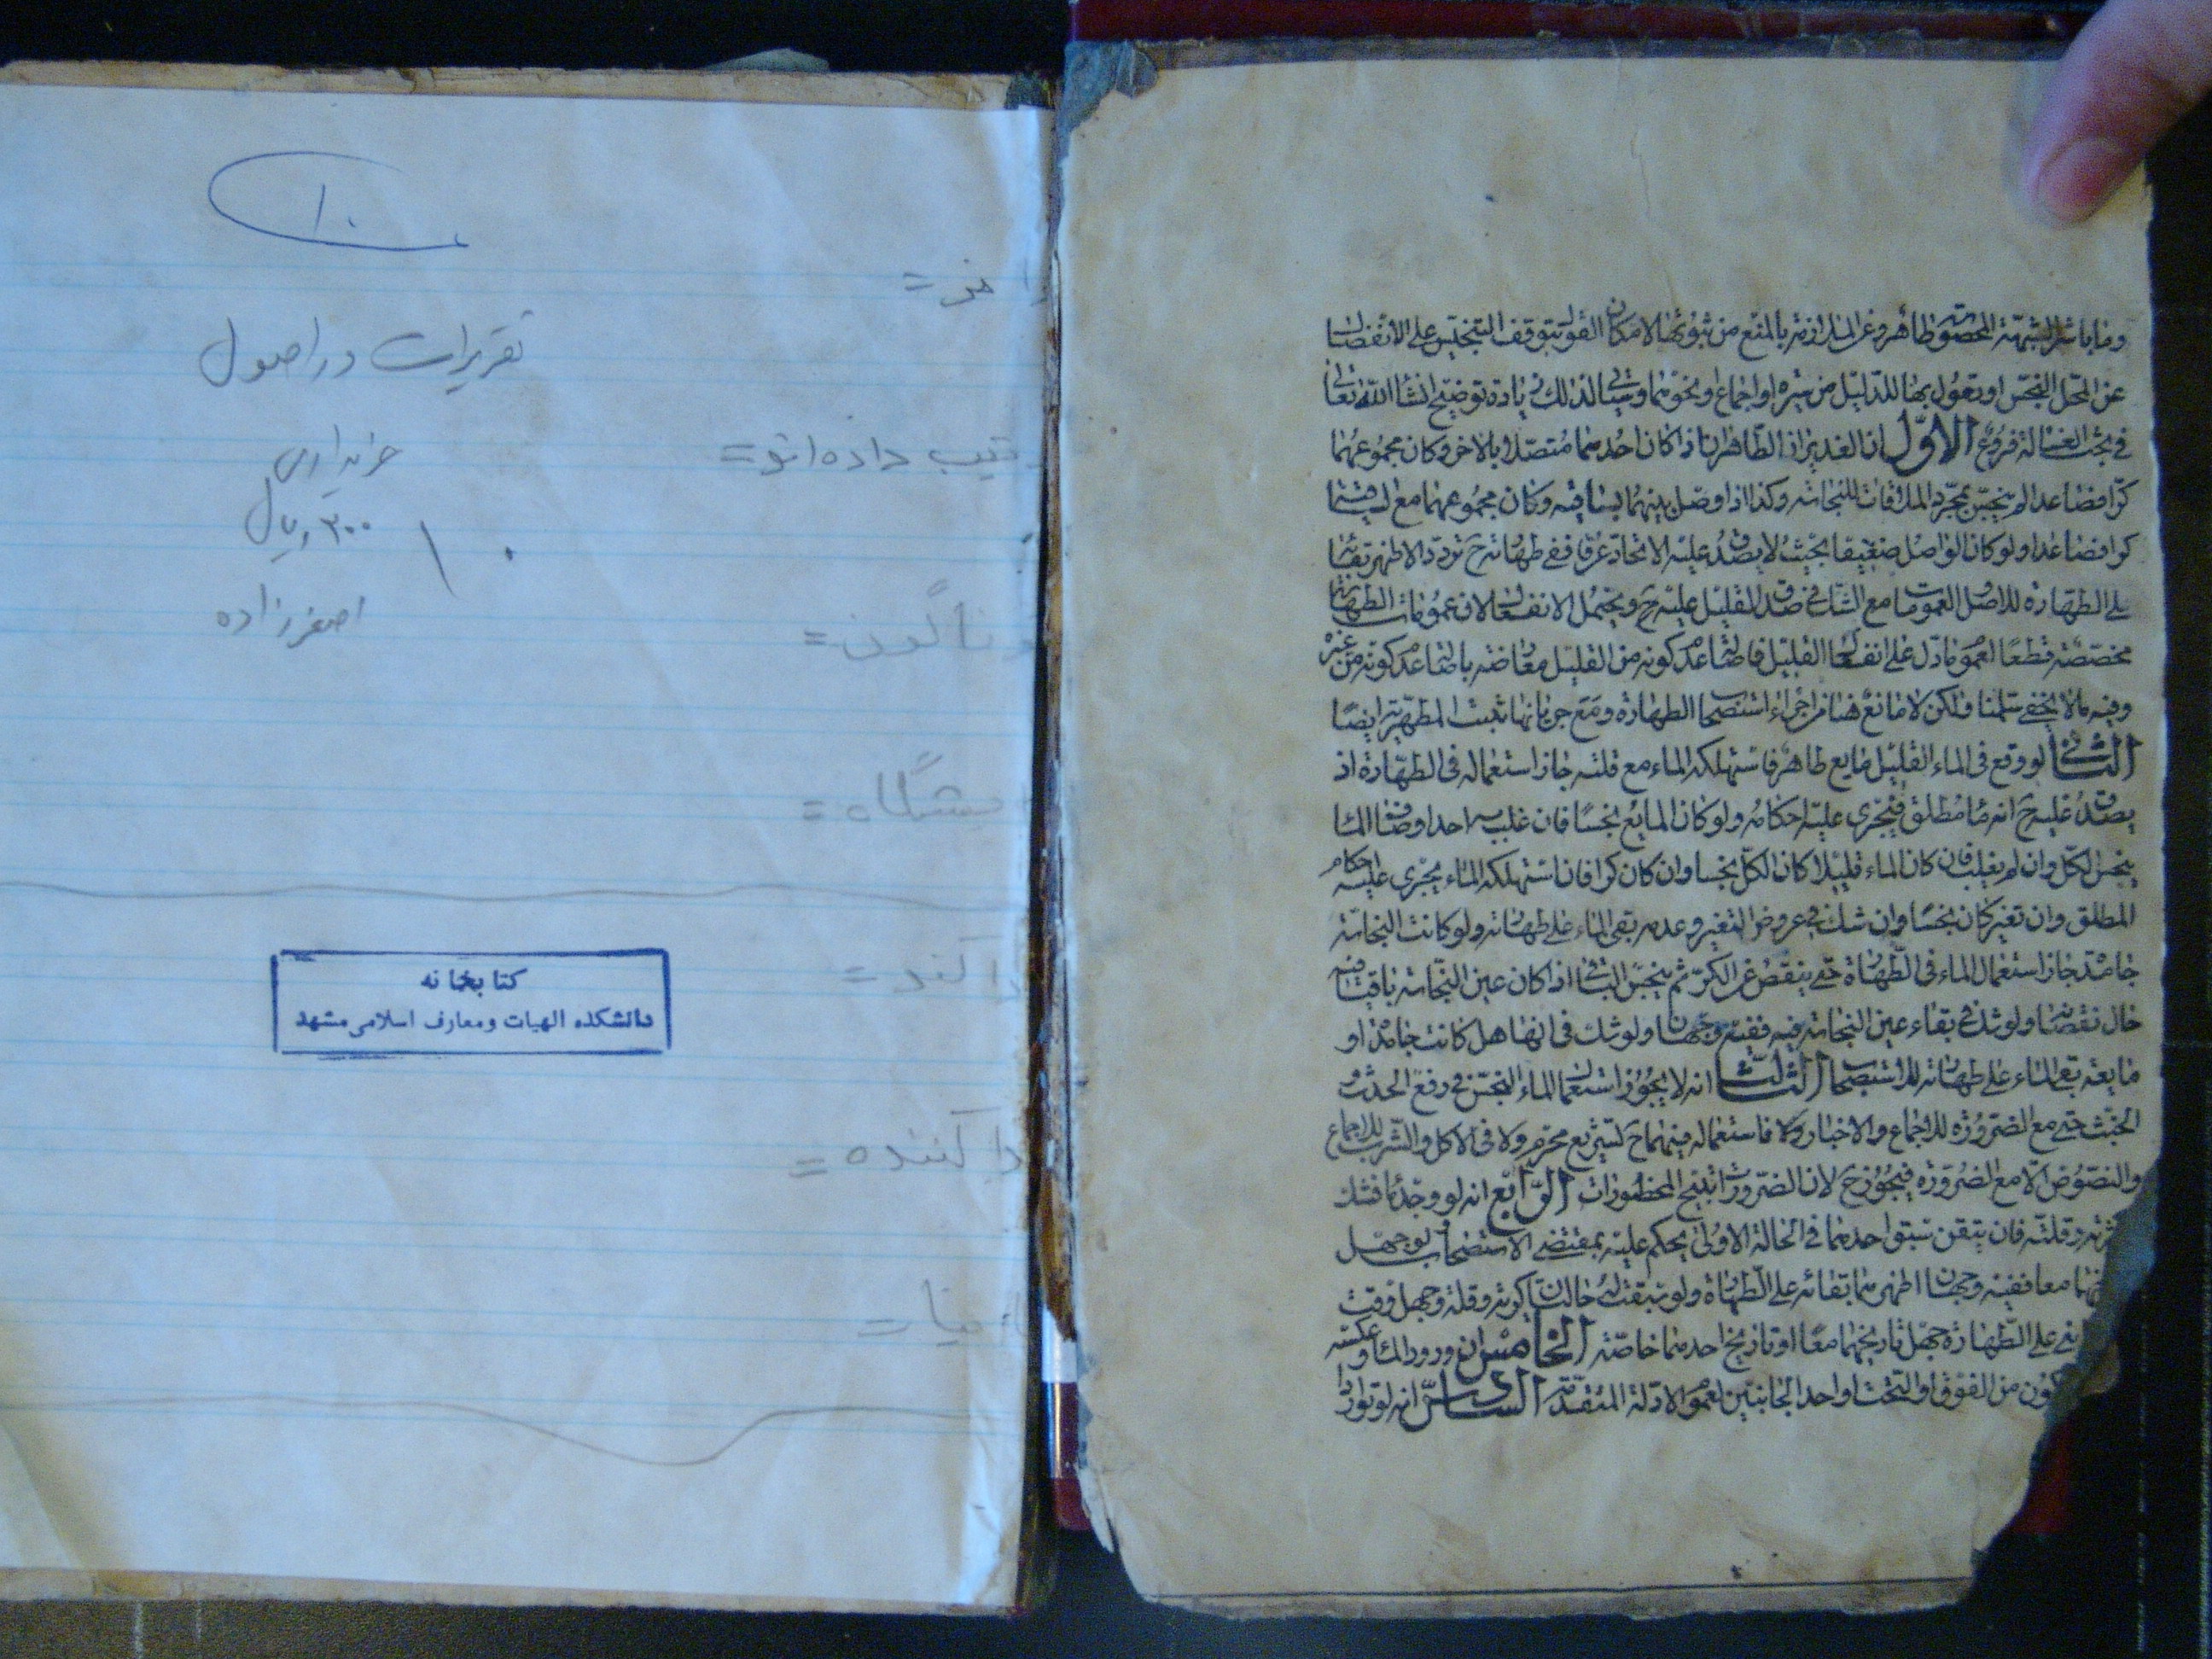 وما باشر الشبهة المحصورة ظاهر وعن الملازمة بالمنع من ثبوتها لامكان القول بتوقف التنجيس على الانفصال
عن المحل النجس او نقول بها للدليل من سيرة او اجماع او نحوهما وسياتى لذلك زيادة توضيح انشاء الله تعالى
فى بحث الغسالة فروع الاول ان الغديرين الطاهرين اذا كان احدهما متصلا بالاخر وكان مجموعهما
كرا فصاعدا لم ينجس بمجرد الملاقات للنجاسة وكذا اذا وصل بينهما بساقية وكان مجموعهما مع
كرا فصاعدا ولو كان الواصل ضيقا بحيث لا يصدق عليه الاتحاد عرفا ففى طهارته ح تردد الاظهر بقائه
على الطهارة للاصل والعمومات مع الشك فى صدق القليل عليه ح ويحتمل الانفعال لان عمومات الطهارة
مخصصة قطعا بعموم ما دل على انفعال القليل فاصالة عدم كونه من القليل معارضة باصالة عدم كونه من غيره
وفيه ما لا يخفى سلمنا ولكن لا مانع هنا من اجراء استصحاب الطهارة ومع جريانها تثبت المطهرية ايضا
الثانى لو وقع فى الماء القليل مايع طاهر فاستهلكه الماء مع قلته جاز استعماله فى الطهارة اذ
يصدق عليه ح انه ماء مطلق فيجرى عليه احكامه ولو كان المايع نجسا فان غلب احد اوصاف الماء
ينجس الكل وان لم يغلب فان كان الماء قليلا كان الكل نجسا وان كان كرا فان استهلكه الماء يجرى عليه احكام
المطلق وان تغير كان نجسا وان شك فى عروض التغير وعدمه بقى الماء على طهارته ولو كانت النجاسة
جامدة جاز استعمال الماء فى الطهارة حتى ينقص عن الكر ثم ينجس الباقى اذا كان عين النجاسة باقية فيه
حال نقصانه ولو شك فى بقاء عين النجاسة فيه ففيه وجهان ولو شك فى انها هل كانت جامدة او
مايعة بقى الماء على طهارته للاستصحاب الثالث انه لا يجوز استعمال الماء النجس فى رفع الحدث و
الخبث حتى مع الضرورة للاجماع والاخبار ولا فاستعماله فيهما ح تشريع محرم ولا فى الاكل والشرب للاجماع
والنصوص الا مع الضرورة فيجوز ح لان الضرورات تبيح المحظورات الرابع انه لو وجد ماء فشك
وقلته فان تيقن سبق احدهما فى الحالة الاولى يحكم عليه بمقتضى الاستصحاب ولو جهل
معا ففيه وجهان اظهرهما بقائه على الطهارة ولو تيقنت له حالتان كرية وقلة وجهل وقت
على الطهارة جهل تاريخهما معا او تاريخ احدهما خاصة الخامس ان ورود الماء وعكسه
من الفوق او التحت او احد الجانبين لعموم الادلة المتقدمة السادس انه لو توارد
۱۰
تقریرات در اصول
خریداری
۳۰۰ ریال
۱۰
اصغرزاده
کتابخانه
دانشکده الهیات و معارف اسلامی مشهد